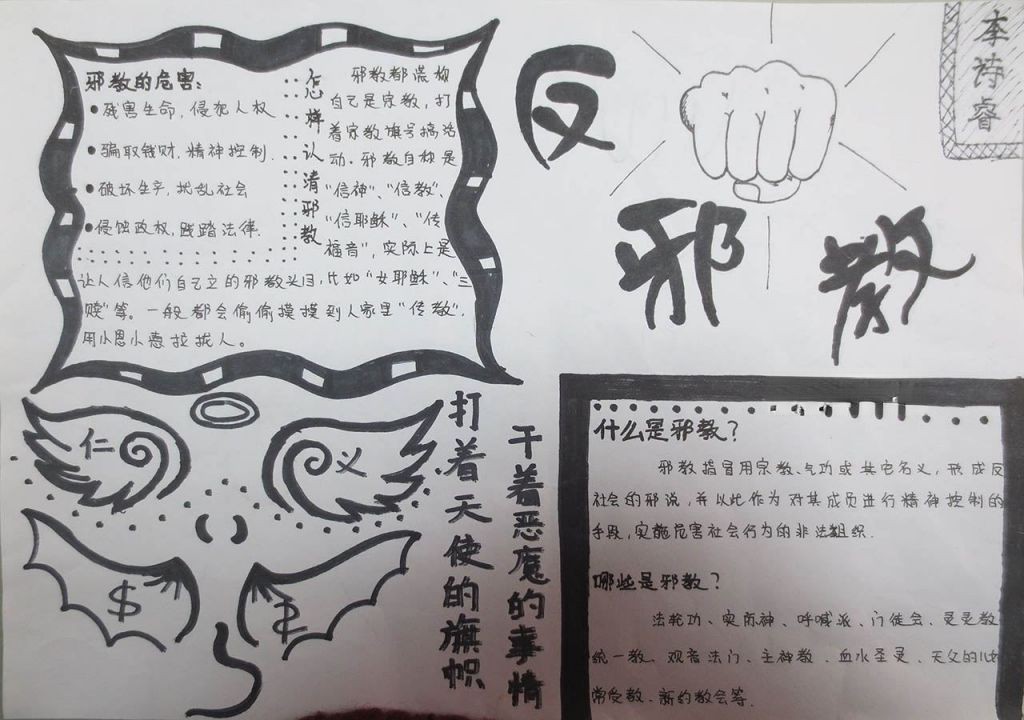 李诗睿
反
邪教
邪教的危害:
•残害生命,侵犯人权
•骗取钱财,精神控制.
•破坏生产,扰乱社会
•侵蚀政权,践踏法律.
怎样认清邪教
邪教都谎称
自己是宗教,打
着宗教旗号搞活
动.邪教自称是
“信神”、“信教”、
“信耶稣”、“传
福音”,实际上是
让人信他们自己立的邪教头目,比如“女耶稣”、“三
赎”等。一般都会偷偷摸摸到人家里“传教”,
用小恩小惠拉拢人。
仁
义
$
打着天使的旗帜
干着恶魔的事情
什么是邪教?
邪教指冒用宗教、气功或其它名义,形成反
社会的邪说,并以此作为对其成员进行精神控制的
手段,实施危害社会行为的非法组织.
哪些是邪教?
法轮功、实际神、呼喊派、门徒会、灵灵教
统一教、观音法门、主神教、血水圣灵、天父的儿女
常受教、新约教会等.